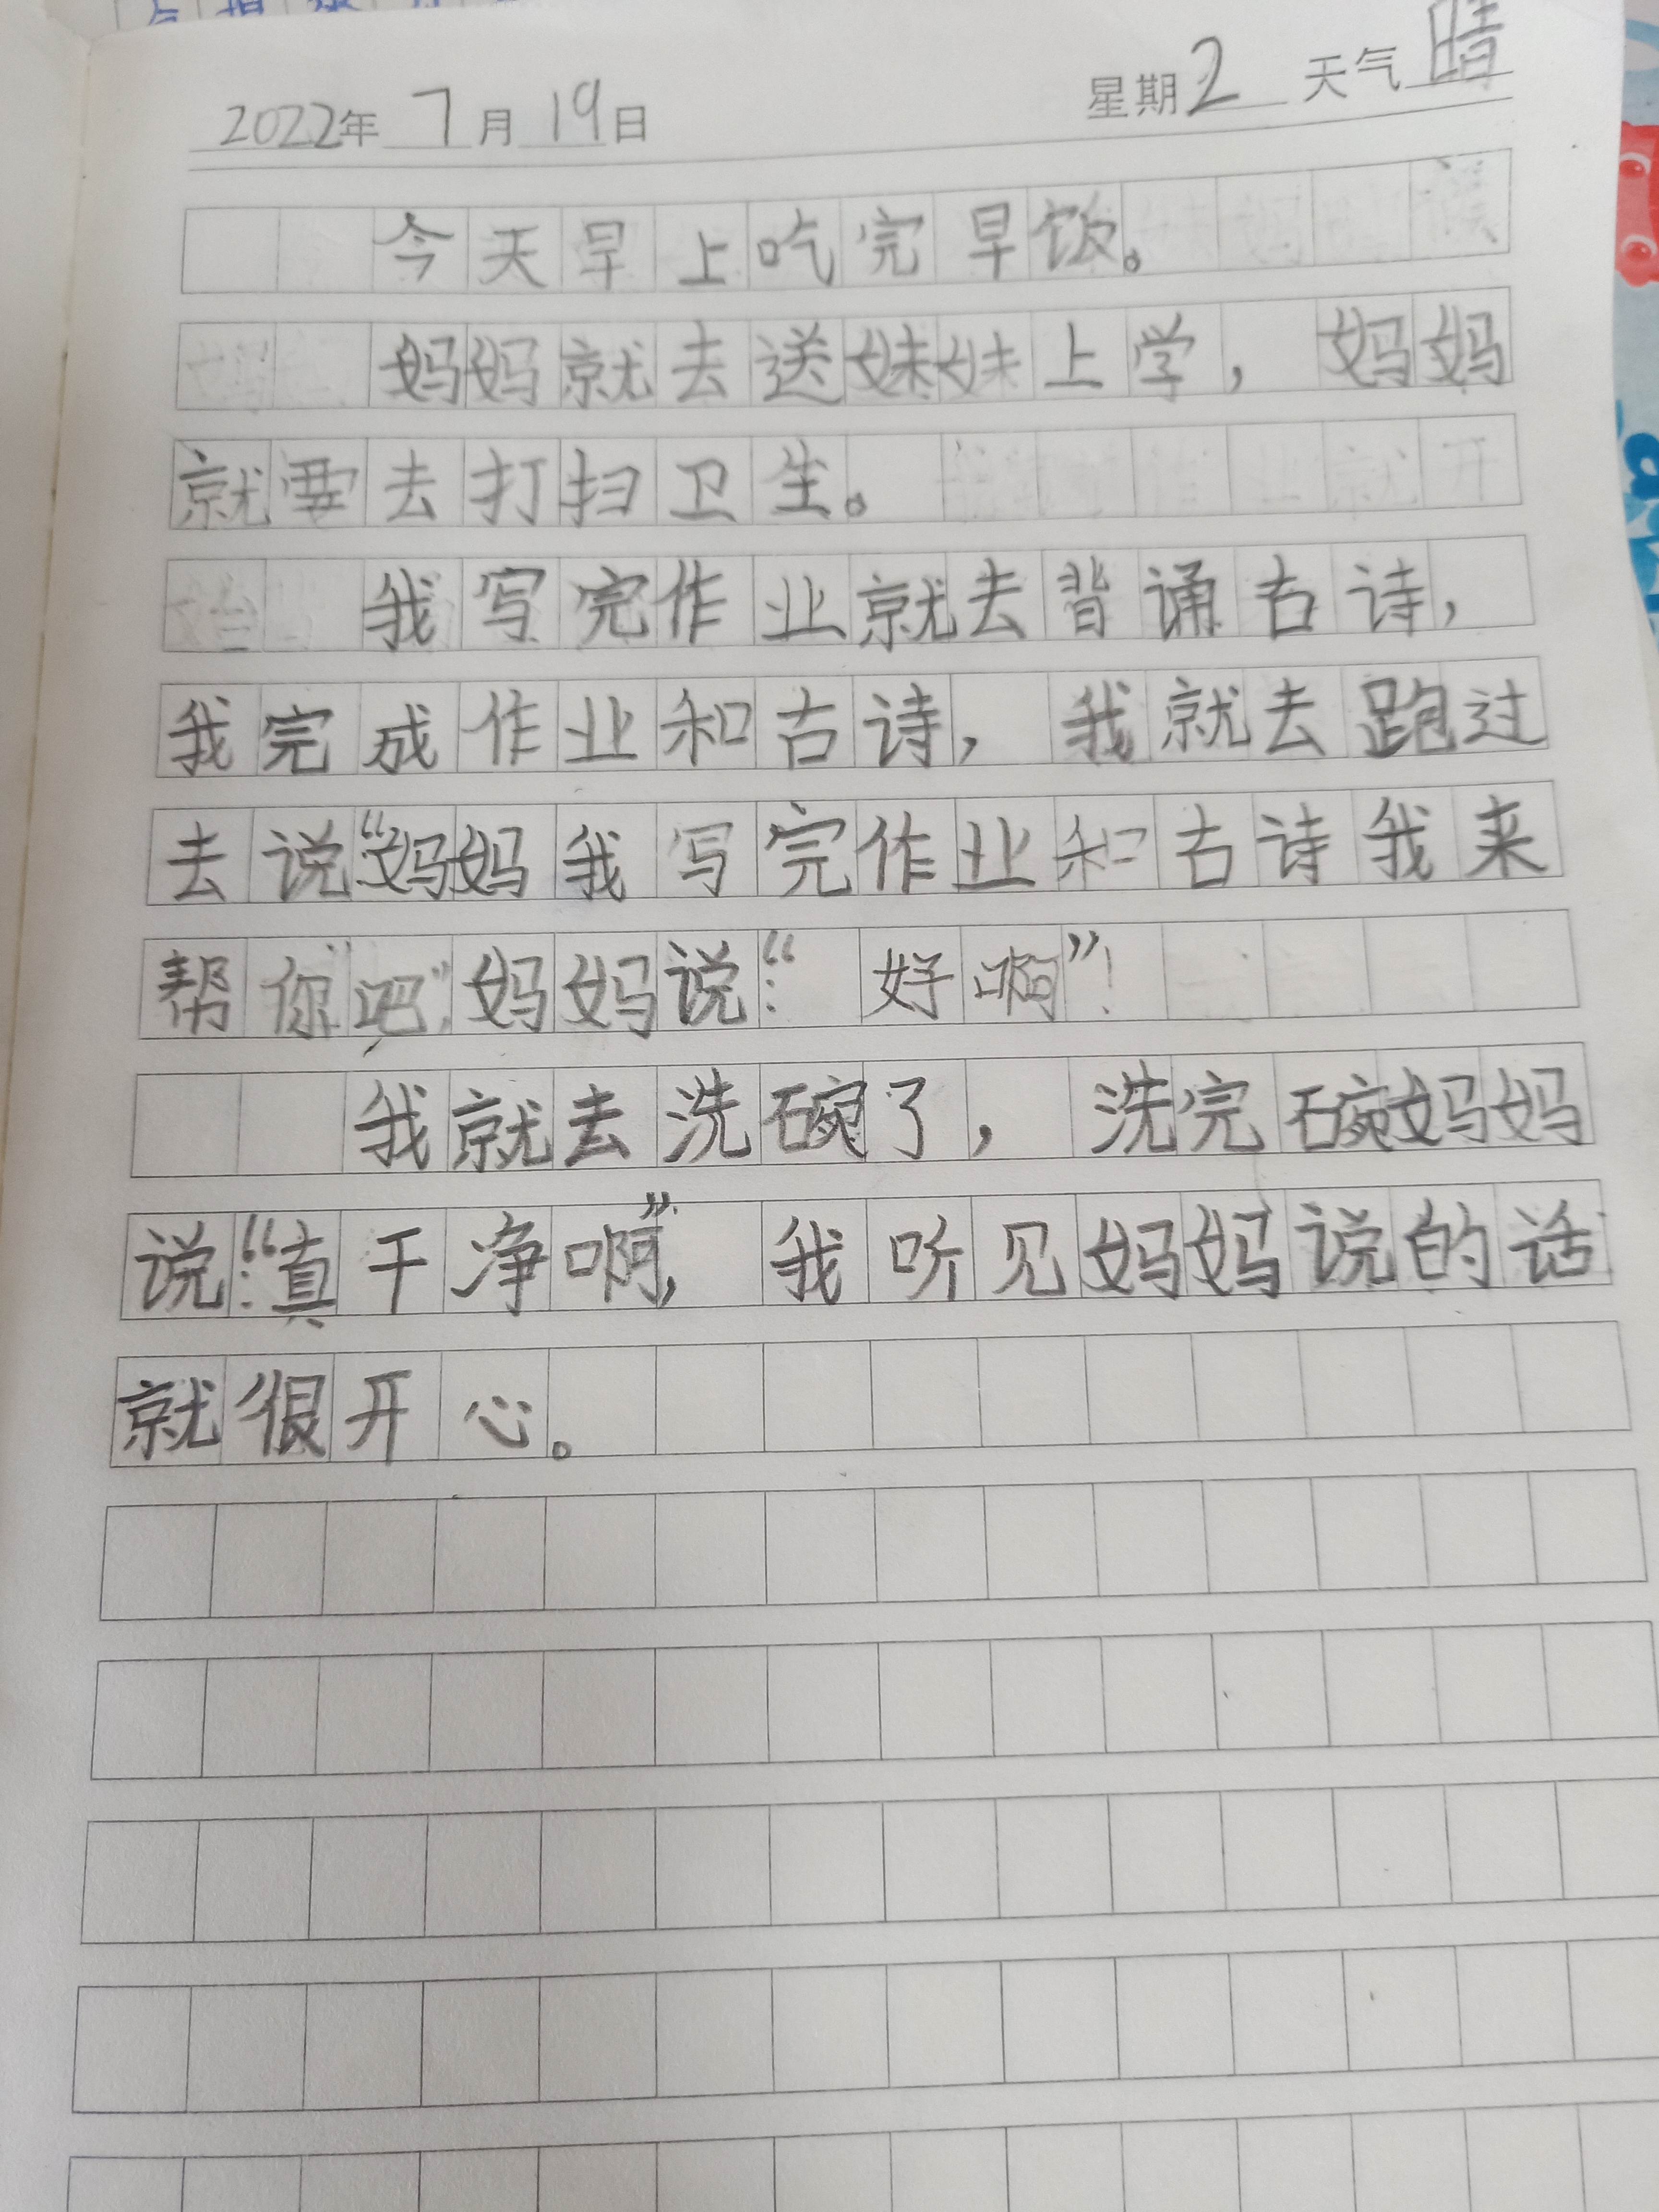 2022年 7月 19日 星期2 天气晴
今天早上吃完早饭。
妈妈就去送妹妹上学，妈妈
就要去打扫卫生。
我写完作业就去背诵古诗，
我完成作业和古诗，我就去跑过
去说：“妈妈我写完作业和古诗我来
帮你吧”，妈妈说：“好啊”！
我就去洗碗了，洗完碗妈妈
说：“真干净啊”，我听见妈妈说的话
就很开心。